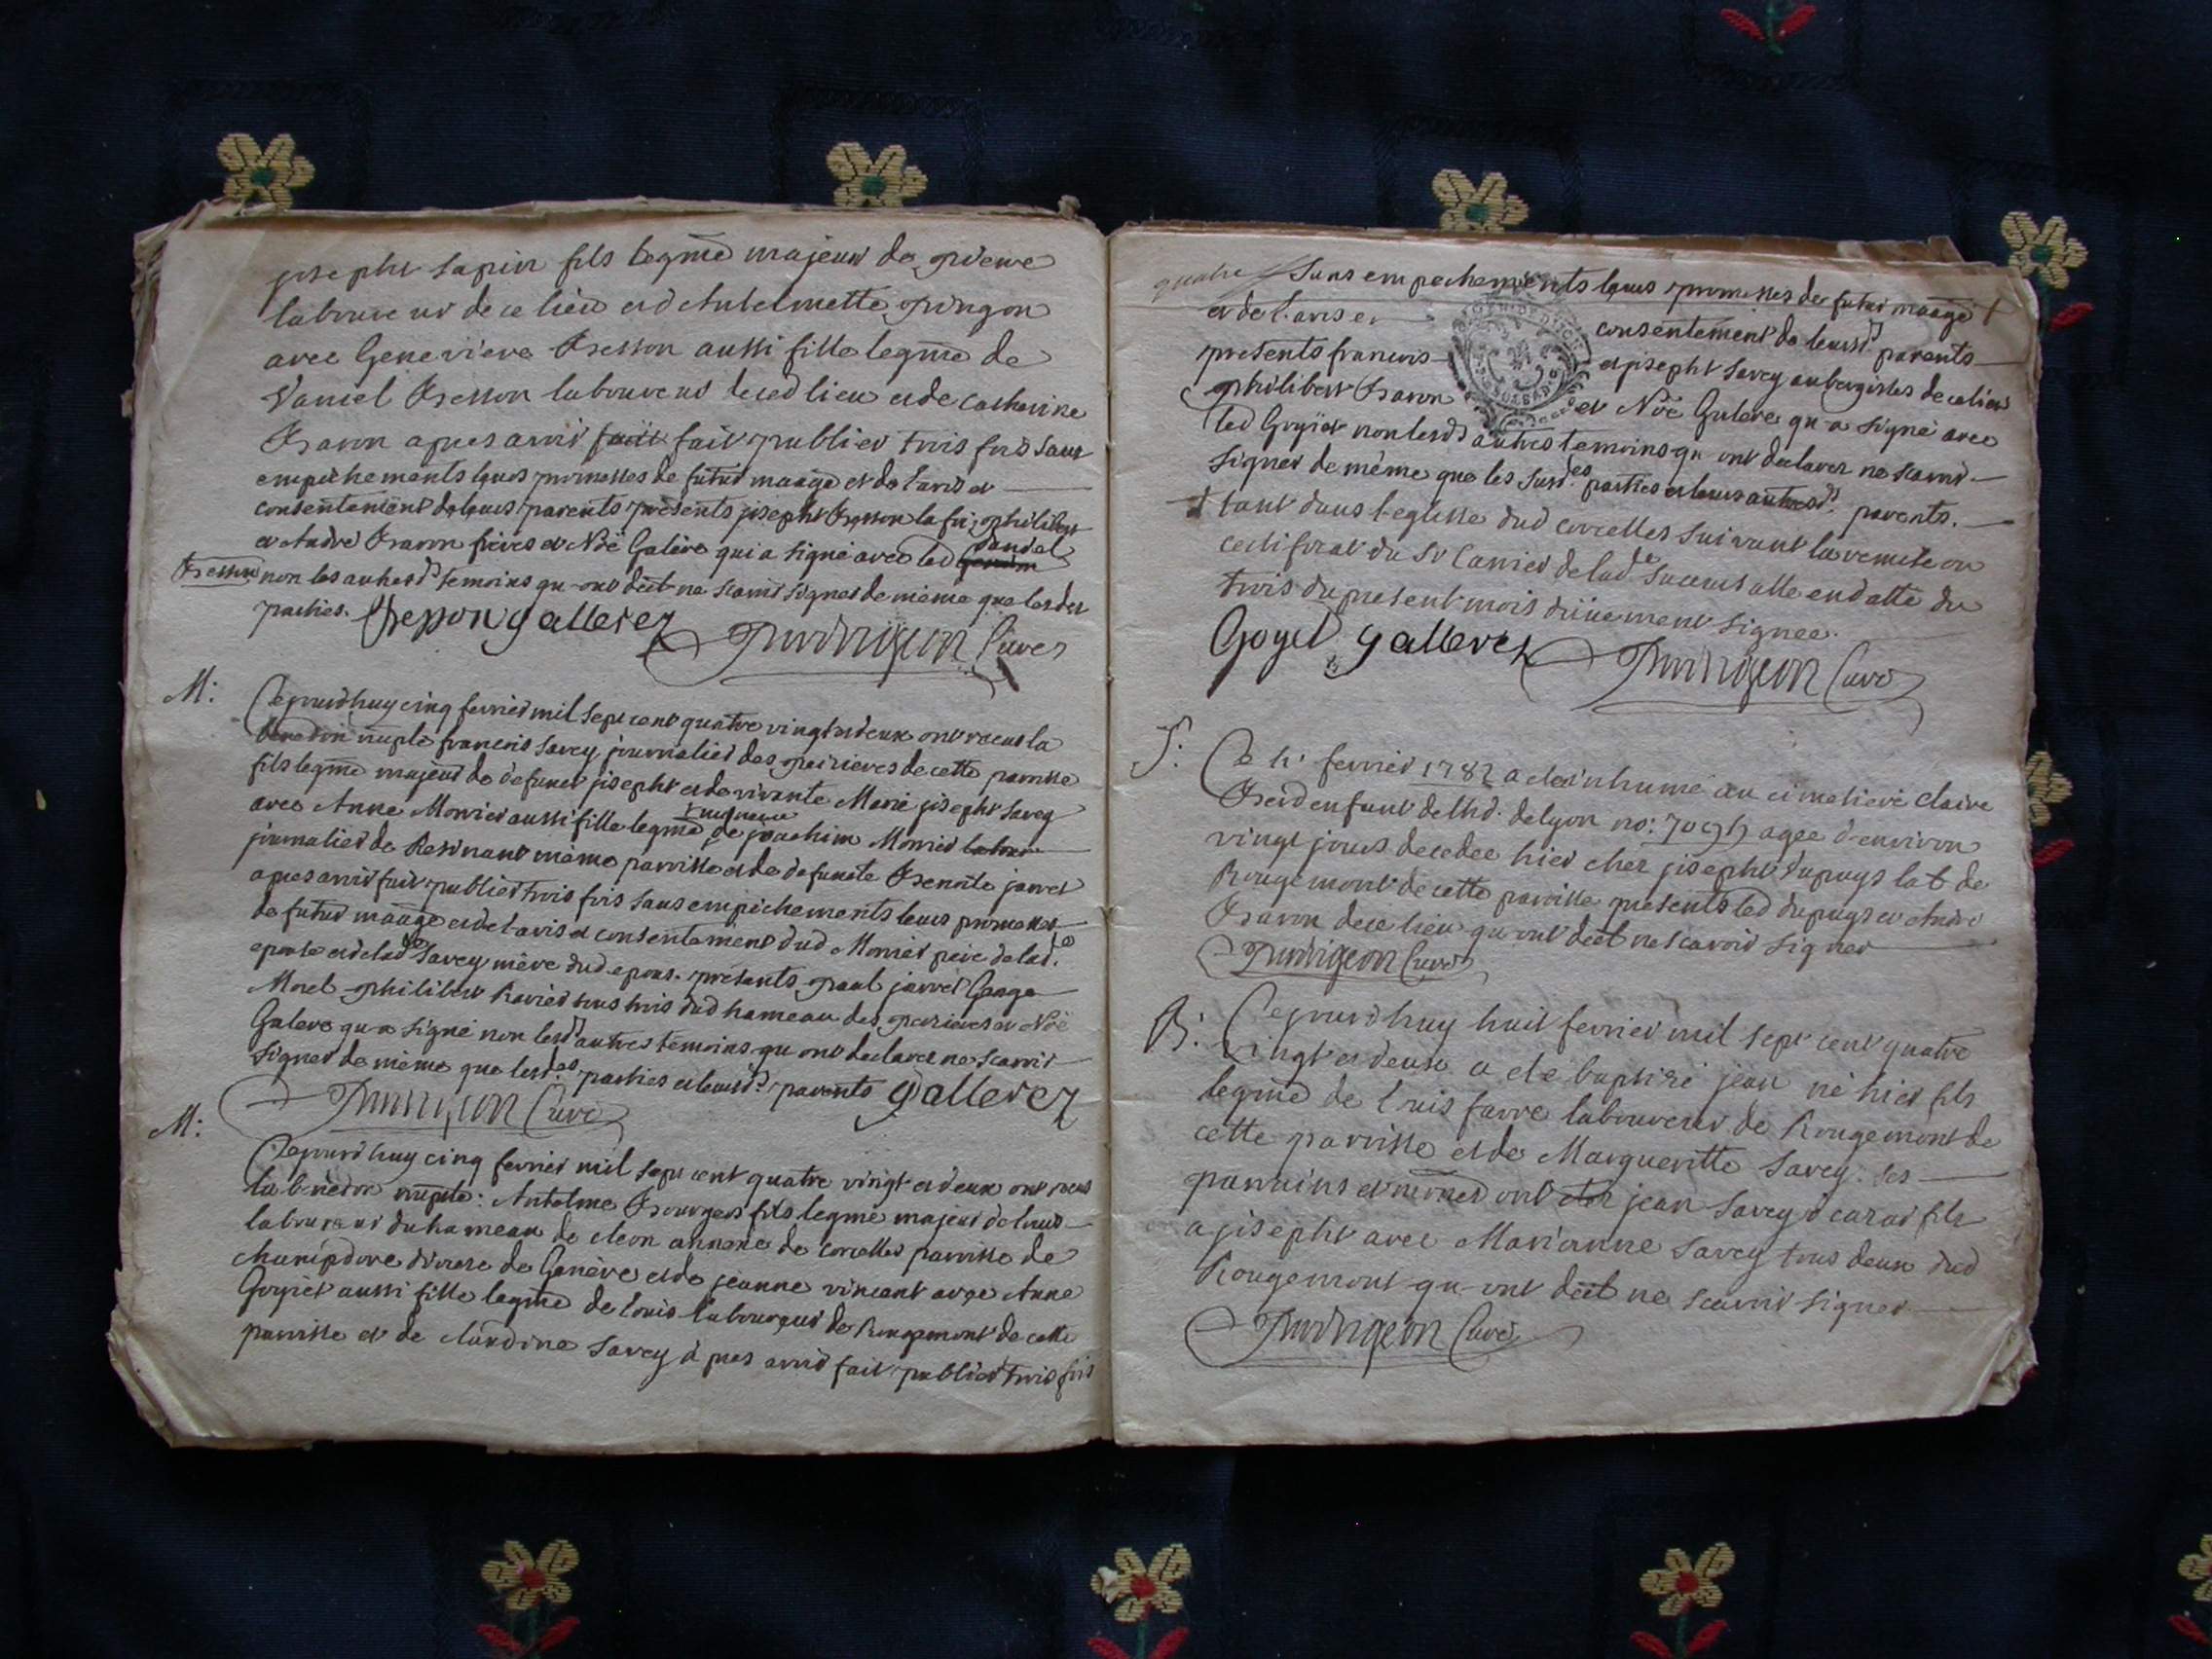 joseph Sapin fils legme majeur de pierre
laboureur de ce lieu et d'Anthelmette pingon
avec Genevieve Bresson aussi fille legme de
Daniel Bresson laboureur de ced lieu et de Catherine
Baron apres avoir fait publier trois fois sans
empêchements leurs promesses de futur maage et de l'avis et
consentement de leurs parents présents joseph Bresson philibert
et André Baron frères et Noë Galère qui a signé avec led Daniel
Bresson non les autres ds temoins qu ont deët ne scavoir signer de même que les des
parties. Bresson gallerez
Curé
M: Cejourdhuy cinq fevrier mil sept cent quatre vingt et deux ont receus la
nuple francois Savey journalier des peirieres de cette paroisse
fils legme majeur de defunct joseph et de vivante Marie joseph Savey
avec Anne Monier aussi fille legme de joachim Monier
journalier de même paroisse et de defuncte Benoite jarret
apres avoir fait publier trois fois sans empêchements leurs promesses
de futur maage et de l'avis et consentement dud Monier père de lad.e
epouse et de lad.e Savey mère dud epoux. présents paul jarret
Morel philibert Ravier tous trois dud hameau des perieres et Noë
Galere qu a signé non lesd autres temoins qu ont declarer ne scavoir
signer de même que lesd.es parties et leursd.s parents gallerez
Curé
M: Cejourdhuy cinq fevrier mil sept cent quatre vingt et deux ont receus
la bnedon nuple: Antelme Bourgeois fils legme majeur de louis
laboureur du hameau de cleon annexe de corcelles paroisse de
champdore diocese de Genève et de jeanne vincent avec Anne
Goyiet aussi fille legme de louis laboureur de Rougemont de cette
paroisse et de claudine Savey apres avoir fait publier trois fois
quatre Sans empechements leurs promesses de futur maage
et de l'avis et consentement de leursd.s parents
présents francois et joseph Savey aubergistes de ce lieu
philibert Baron et Noë Galere qu a signé avec
led Goyiet non lesd.s autres temoins qu ont declarer ne scavoir
signer de même que les susd.es parties et leurs autres d.s parents.
tant dans l'eglise dud corcelles suivant la remise ou
certificat du Sr Carrier de lad.e succursalle en datte du
trois du present mois düüement signée.
Goyet gallerez
Curé
S: Ce 4: fevrier 1782 a ete inhumé au cimetiere claire
enfant de lhd. de lyon no: agee d'environ
vingt jours decedee hier chez joseph dupuys lab de
Rougemont de cette paroisse présents led dupuys et André
Baron de ce lieu qu ont deët ne scavoir signer
Curé
B: Cejourdhuy huit fevrier mil sept cent quatre
vingt et deux a eté baptisé jean né hier fils
legme de louis favre laboureur de Rougemont de
cette paroisse et de Margueritte Savey. ses
parrains et ont jean Savey fils
a joseph avec Marianne Savey tous deux dud
Rougemont qu ont deët ne scavoir signer
Curé